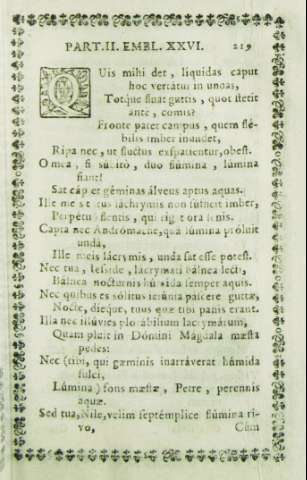 PART. II. EMBL. XXVI. 219
QUis mihi det, liquidas caput
hoc vertatur in undas,
Totque fluat guttis, quot stetit
ante, comis?
Fronte patet campus, quem flé-
bilis imber inundet,
Ripa nec, ut fluctus exspatientur, obest.
O mea, si súbito, duo flúmina, lúmina
fiant!
Sat cápet géminas álveus aptus aquas.
Ille me s lácrymis non súfficit imber,
Perpétuò flentis, qui rig t ora senis.
Capta nec Andrómache, quâ lúmina próluit
undâ,
Ille meis lácrymis, unda sat esse potest.
Nec tua, Iesside, lacrymati bálnea lecti,
Bálnea nocturnis húmida semper aquis.
Nec quibus es sólitus ieiúnia páscere guttæ,
Nocte, dieque, tuus quæ tibi panis erant.
Illa nec illúvies plorábilium lacrymárum,
Quam pluit in Dómini Mágdala mæsta
pedes:
Nec (tibi, qui gæminis inarráverat húmida
sulci,
Lúmina) fons mæstæ, Petre, perennis
aquæ.
Sed tua, Nile, velim septémplice flúmina ri-
vo, Cùm